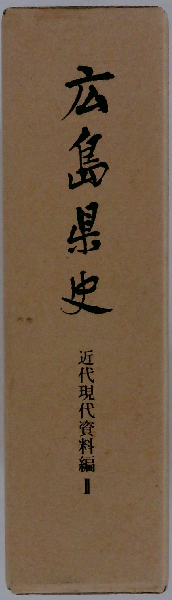 広島県史
近代現代資料編Ⅱ